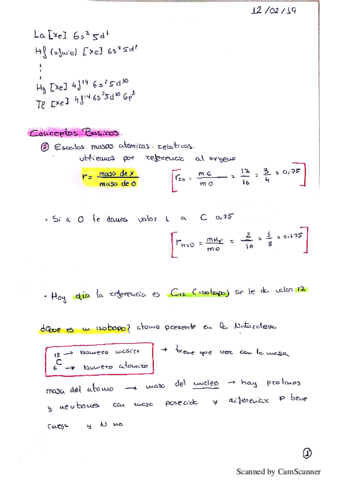 12/02/19
La [Xe] 6s² 5d¹
Hf (afnio) [Xe] 6s² 5d²
Hg [Xe] 4f¹⁴ 6s² 5d¹⁰
Tl [Xe] 4f¹⁴ 6s² 5d¹⁰ 6p¹
Conceptos Basicos.
Escalas masas atomicas relativas.
utilizamos por referencia al oxigeno
r = masa de x / masa de O
= mC / mO = 12 / 16 = 3 / 4 = 0,75
· Si a O le damos valor 1 a C 0,75
= / mO = 2 / 16 = 1 / 8 = 0.125
· Hoy dia la referencia es C12 (isotopo) se le da valor 12
¿Que es un isotopo? atomo presente en la Naturaleza
→ Numero masico → tiene que ver con la masa
C
6 → Numero atomico
masa del atomo → masa del nucleo → hay protones
y neutrones con masa parecida y diferencia P tiene
carga y N no
1
Scanned by CamScanner